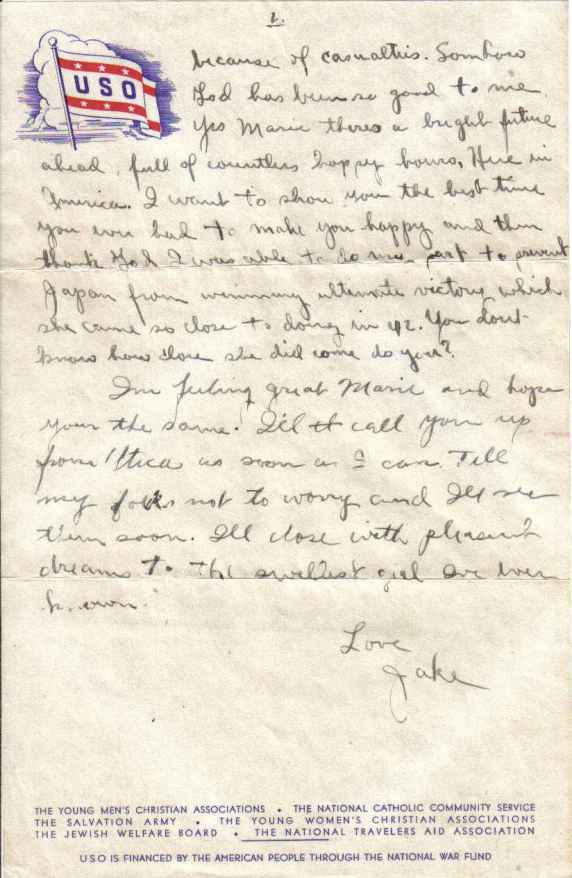 2.
USO
because of casualtys. Somhow
God has been so good to me.
Yes Marie theres a bright future
ahead, full of countless happy hours, Here in
America. I want to show you the best time
you ever had to make you happy and then
thank God I was able to do my part to prevent
Japan from winning ultimate victory which
she came so close to doing in 42. You dont
know how close she did come do you?
Im feeling great Marie and hope
your the same. I'll call you up
from Utica as soon as I can. Tell
my folks not to worry and Ill see
them soon. Ill close with pleasent
dreams to the swellest girl Ive ever
known.
Love
Jake
THE YOUNG MEN'S CHRISTIAN ASSOCIATIONS • THE NATIONAL CATHOLIC COMMUNITY SERVICE
THE SALVATION ARMY • THE YOUNG WOMEN'S CHRISTIAN ASSOCIATIONS
THE JEWISH WELFARE BOARD • THE NATIONAL TRAVELERS AID ASSOCIATION
USO IS FINANCED BY THE AMERICAN PEOPLE THROUGH THE NATIONAL WAR FUND